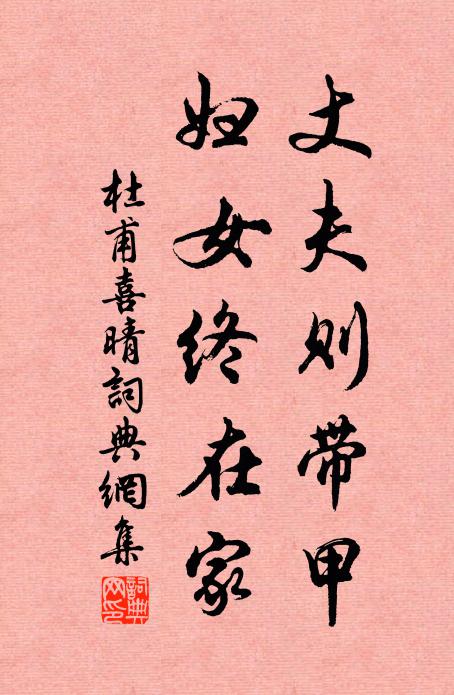 丈夫则带甲
妇女终在家
杜甫喜晴詞典網集
詞典网印